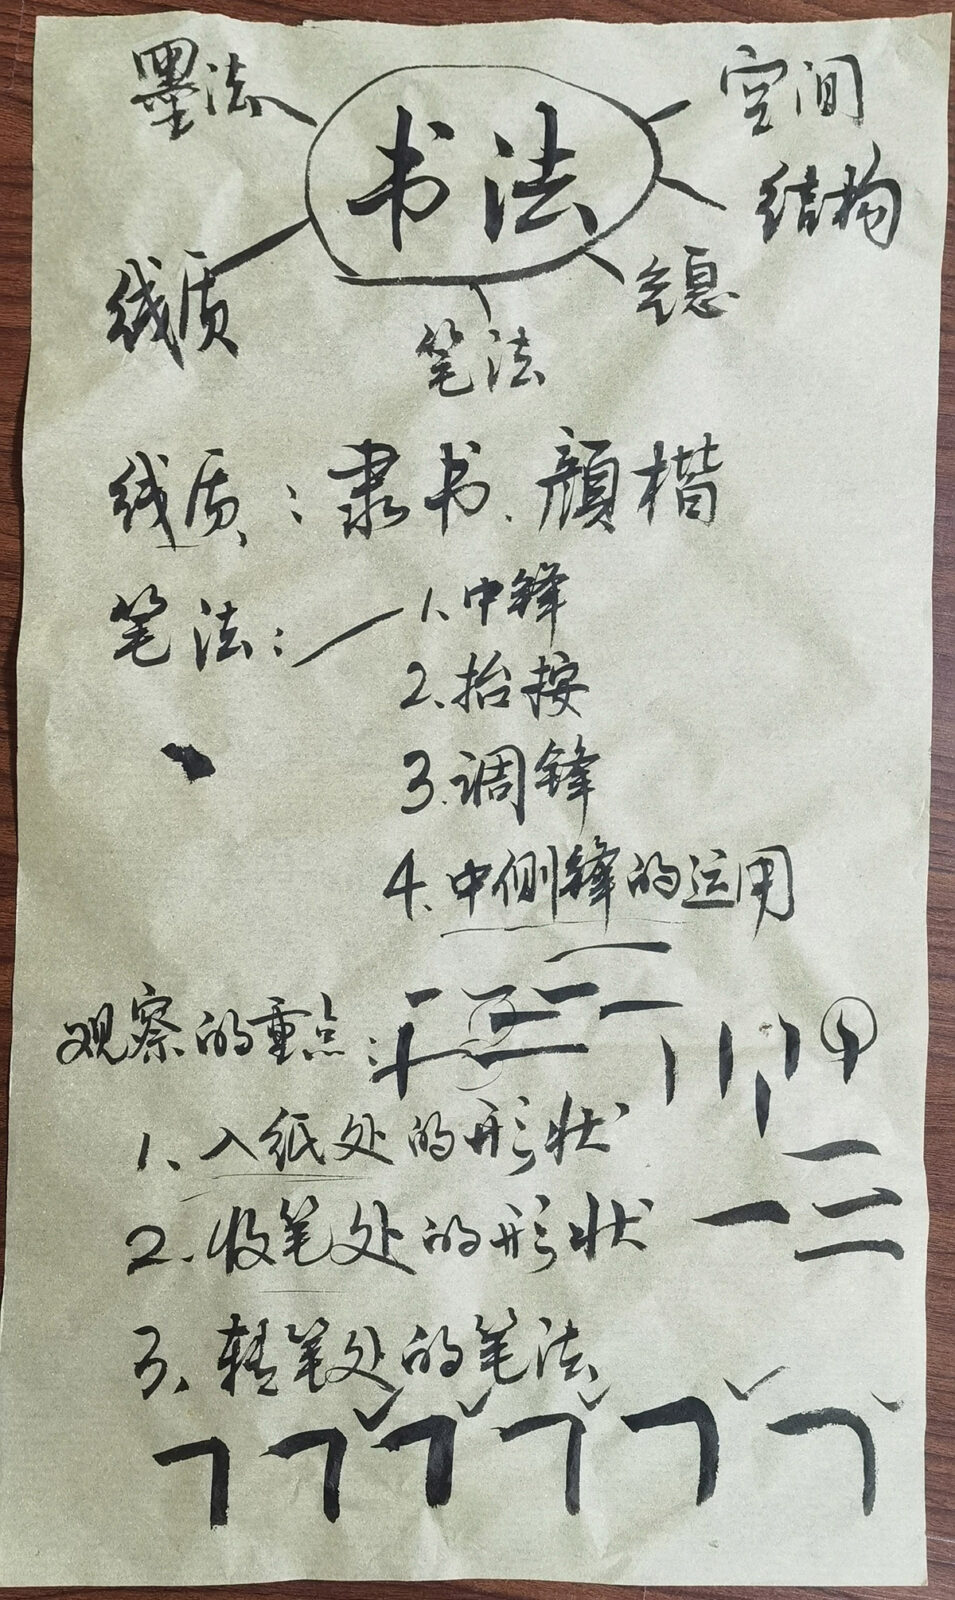 墨法
书法
空间
结构
线质
气息
笔法
线质：隶书、颜楷
笔法：
1、中锋
2、抬按
3、调锋
4、中侧锋的运用
观察的重点：
1、入纸处的形状
2、收笔处的形状
3、转笔处的笔法